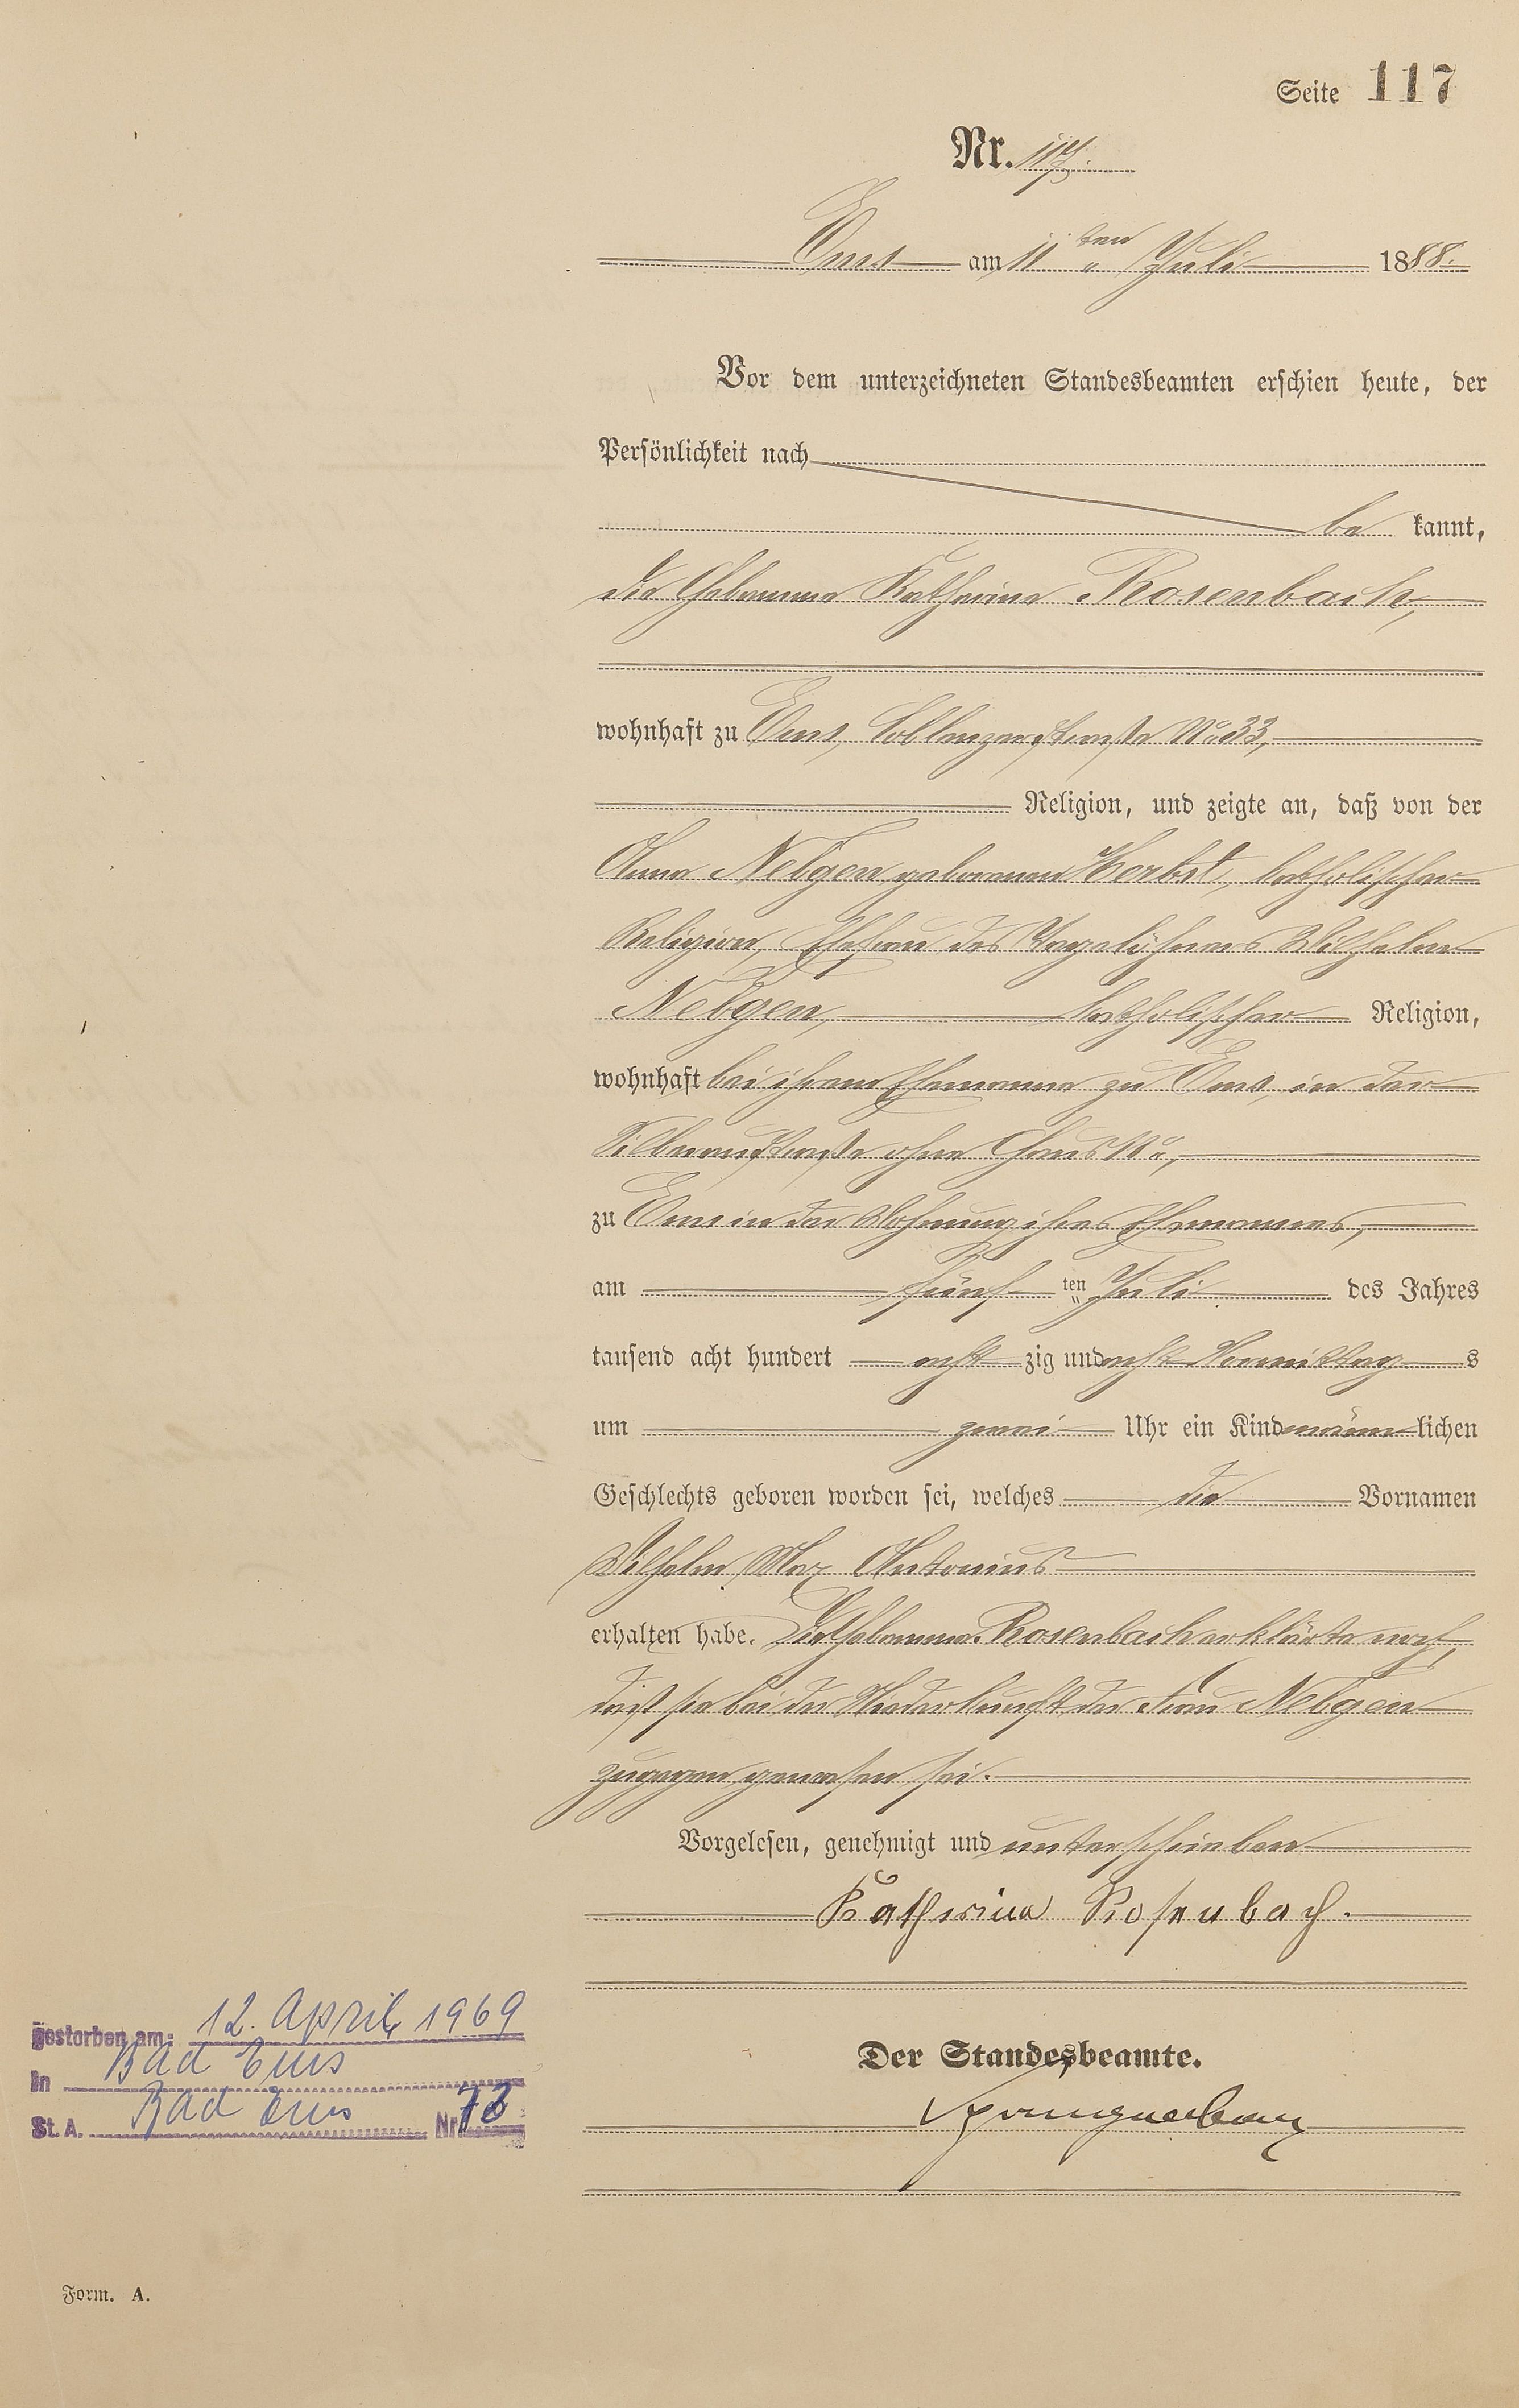 Seite 117
Nr. 117.
Ems am 11 ten Juli 1888.
Vor dem unterzeichneten Standesbeamten erschien heute, der
Persönlichkeit nach
be kannt,
die Hebamme Katharina Rosenbach,
wohnhaft zu Ems, Coblenzerstraße No 33,
Religion, und zeigte an, daß von der
Anna Nebgen geborenen Herbst, katholischer
Religion, Ehefrau des Tagelöhners Wilhelm
Nebgen, katholischer Religion,
wohnhaft bei ihrem Ehemanne zu Ems, in der
Silberaustraße ohne Haus No,
zu Ems in der Wohnung ihres Ehemannes,
am fünf ten Juli des Jahres
tausend acht hundert acht zig und acht Vormittag s
um zwei Uhr ein Kind männ lichen
Geschlechts geboren worden sei, welches die Vornamen
Wilhelm Max Antonius
erhalten habe. Die Hebamme Rosenbach erklärte noch,
daß sie bei der Niederkunft der Frau Nebgen
zugegen gewesen sei.
Vorgelesen, genehmigt und unterschrieben
Katharina Rosenbach.
Der Standesbeamte.
gestorben am: 12. April 1969
in Bad Ems
St. A. Bad Ems Nr. 73
Form. A.